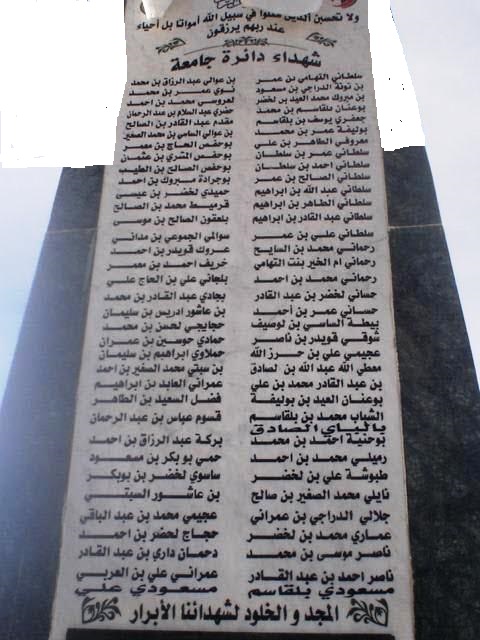 ولا تحسبن الذين قتلوا في سبيل الله أمواتا بل أحياء
عند ربهم يرزقون
شهداء دائرة جامعة
سلطاني التهامي بن عمر
بن نونة الدراجي بن مسعود
بن مبروك محمد العيد بن لخضر
بوعنان بلقاسم بن محمد
جعفري يوسف بن بلقاسم
بوليفة عمر بن محمد
معروفي الطاهر بن علي
سلطاني عمر بن سلطان
سلطاني احمد بن سلطان
سلطاني الصالح بن عمر
سلطاني عبد الله بن ابراهيم
سلطاني الطاهر بن ابراهيم
سلطاني عبد القادر بن ابراهيم
سلطاني علي بن عمر
رحماني محمد بن السايح
رحماني ام الخير بنت التهامي
رحماني محمد بن احمد
حساني لخضر بن عبد القادر
حساني عمر بن أحمد
بيطة الساسي بن لوصيف
شوقي قويدر بن ناصر
عجيمي علي بن حرز الله
معطي الله عبد الله بن لصادق
بن عبد القادر محمد بن علي
بوعنان العيد بن بوليفة
الشباب محمد بن بلقاسم
بالباي الصادق
بوحنية احمد بن محمد
رميلي محمد بن احمد
طبوشة علي بن لخضر
نايلي محمد الصغير بن صالح
جلالي الدراجي بن عمراني
عماري محمد بن لخضر
ناصر موسى بن محمد
ناصر احمد بن عبد القادر
مسعودي بلقاسم
بن عوالي عبد الرزاق بن محمد
نوي عمر بن محمد
لعروسي محمد بن احمد
خضري عبد السلام بن عبد الرحمان
مقدم عبد القادر بن الصالح
بن عوالي الساسي بن محمد الصغير
بوحفص الحاج بن معمر
بوحفص المقري بن عثمان
بوحفص الصالح بن الطيب
بوجرادة مبروك بن احمد
حميدي لخضر بن عيسى
قرميط محمد بن الصالح
بلعقون الصالح بن موسى
سوالمي الجموعي بن مداني
عروك قويدر بن احمد
خريف احمد بن معمر
بلجاني علي بن الحاج علي
بجادي عبد القادر بن محمد
بن عاشور ادريس بن سليمان
حجايجي لحسن بن محمد
حمادي حوسين بن عمران
حملاوي ابراهيم بن سليمان
بن سبقي محمد الصغير بن احمد
عمراني العابد بن ابراهيم
فضل السعيد بن الطاهر
قسوم عباس بن عبد الرحمان
بركة عبد الرزاق بن احمد
حمي بوبكر بن مسعود
ساسوي لخضر بن بوبكر
بن عاشور السبتي
عجيمي محمد بن عبد الباقي
حجاج لخضر بن احمد
دحمان داري بن عبد القادر
عمراني علي بن العربي
مسعودي علي
المجد و الخلود لشهدائنا الأبرار